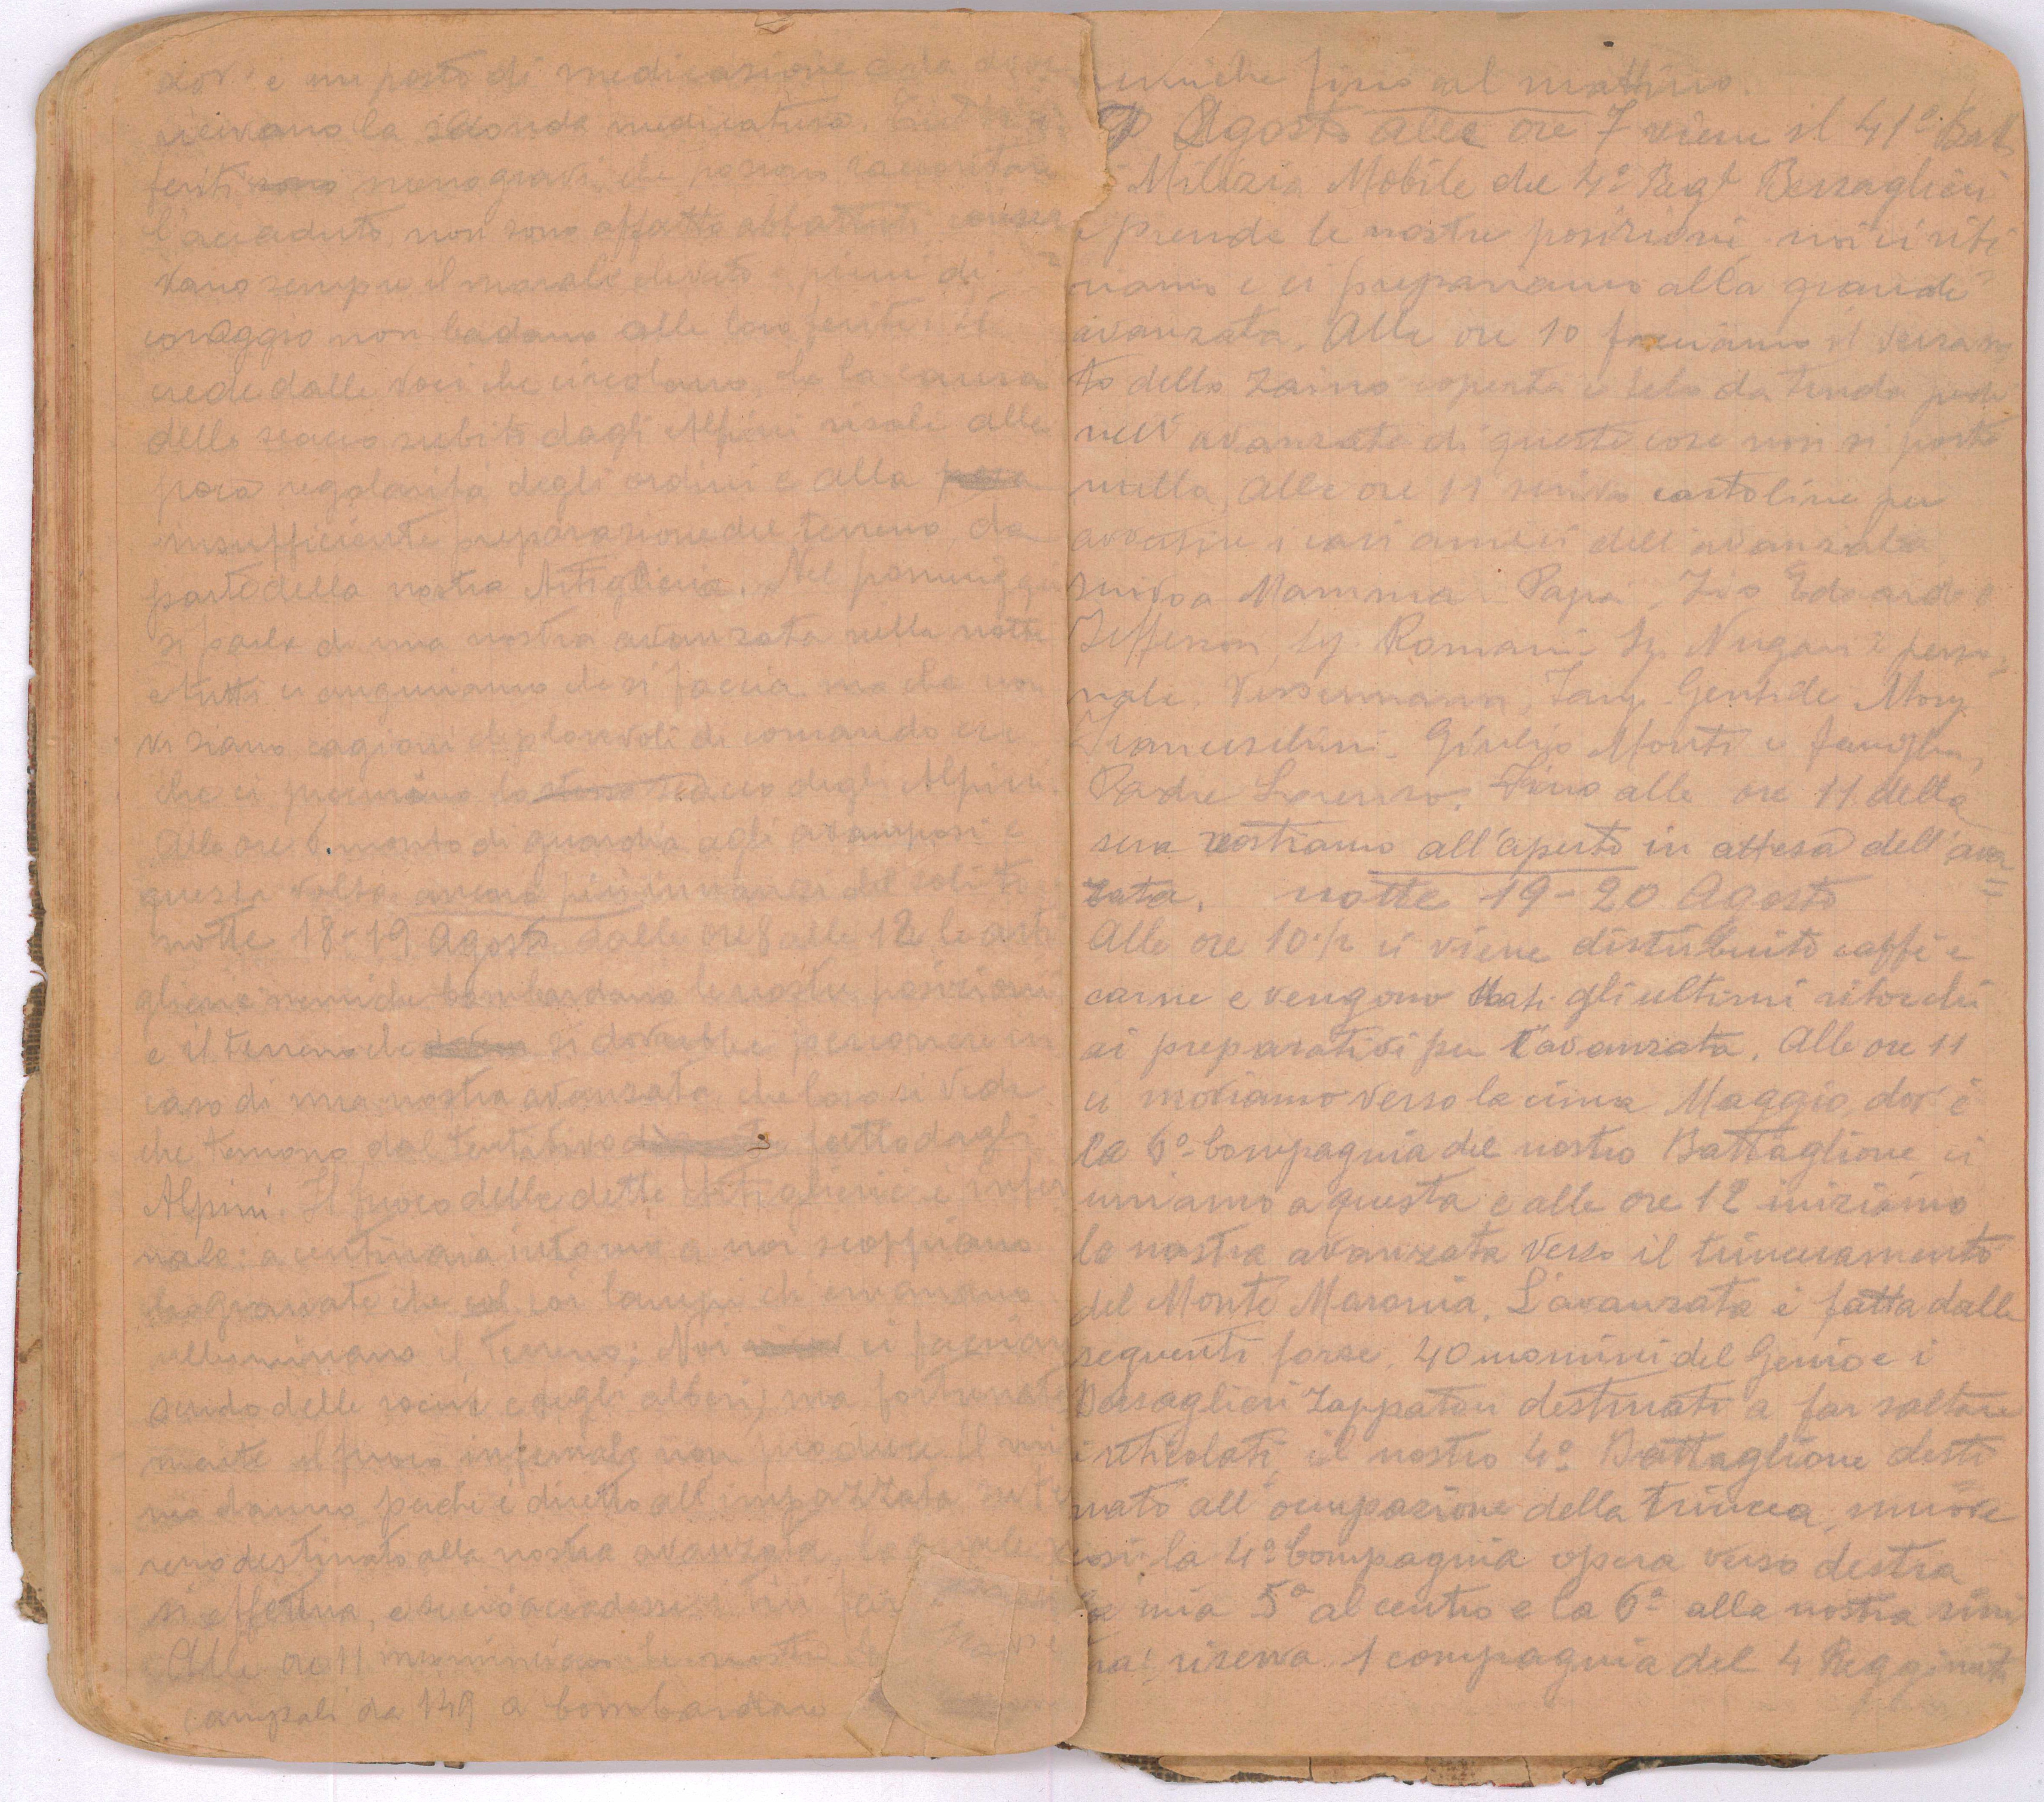 dov'è un posto di medicazione e da dove
ricevano la seconda medicatura.
feriti meno gravi, che possono raccontare
l'accaduto, non sono affatto abbattuti conser
vano sempre il morale elevato e pieni di
coraggio non badano alle loro ferite. Si
crede dalle voci che circolano, che la causa
dello scacco subito dagli Alpini risali alla
poca regolarità degli ordini e alla
insufficiente preparazione del terreno, da
parte della nostra Artiglieria. Nel pomeriggio
si parla di una nostra avanzata nella notte
e tutti ci auguriamo che si faccia, ma che non
vi siano cagioni deplorevoli di comando ecc
che ci procurino lo scacco degli Alpini.
Alle ore 6 monto di guardia agli avamposi e
questa volta ancora più innanzi del solito
notte 18-19 Agosto dalle ore 8 alle 12 le arti
glierie nemiche bombardano le nostre posizioni
e il terreno che si dovrebbe percorrere in
caso di una nostra avanzata, che loro si vede
che temono dal tentativo fatto dagli
Alpini. Il fuoco delle dette Artiglierie è infer
nale: a centinaia intorno a noi scoppiano
le granate che coi lampi ch emanano
illuminano il terreno; Noi ci facciamo
scudo delle rocce e degli alberi, ma fortunata
mente il fuoco infernale non produce il mi
nimo danno perchè è diretto all'impazzata sul te
reno destinato alla nostra avanzata, la quale
si effettua, e se ciò accadesse
Alle ore 11 incominciano le nostre
campali da 149 a bombardare
nemiche fino al mattino.
Agosto alle ore 7 viene il 41º Batt
Milizia Mobile del 4º Regt Bersaglieri
e prende le nostre posizioni, noi ci riti
riamo e ci prepariamo alla grande
avanzata. Alle ore 10 facciamo il versamen
to dello zaino coperta e telo da tenda perchè
nell'avanzata di queste cose non si porta
nulla. Alle ore 11 scrivo cartoline per
avvertire i cari amici dell'avanzata
scrivo a Mamma - Papa - Zio Edoardo
Jefferson, Sig. Romani Sig. Nugari e perso
nale, Gentile Mony
Franceschini - Giulio Monti e famiglia,
Padre Lorenzo. Fino alle ore 11 della
sera restiamo all'aperto in attesa dell'avan=
zata. notte 19-20 Agosto
Alle ore 10½ ci viene distribuito caffè e
carne e vengono dati gli ultimi ritocchi
ai preparativi per l'avanzata. Alle ore 11
ci moviamo verso la cima Maggio, dov'è
la 6ª Compagnia del nostro Battaglione, ci
uniamo a questa e alle ore 12 iniziamo
la nostra avanzata verso il trinceramento
del Monte Maronia. L'avanzata è fatta dalle
seguenti forze. 40 uomini del Genio e i
Bersaglieri Zappatori destinati a far saltare
i reticolati, il nostro 4º Battaglione desti
nato all'occupazione della trincea, muove
così: la 4ª Compagnia opera verso destra
la mia 5ª al centro e la 6ª alla nostra sinis
tra: riserva 1 compagnia del 4 Reggimento